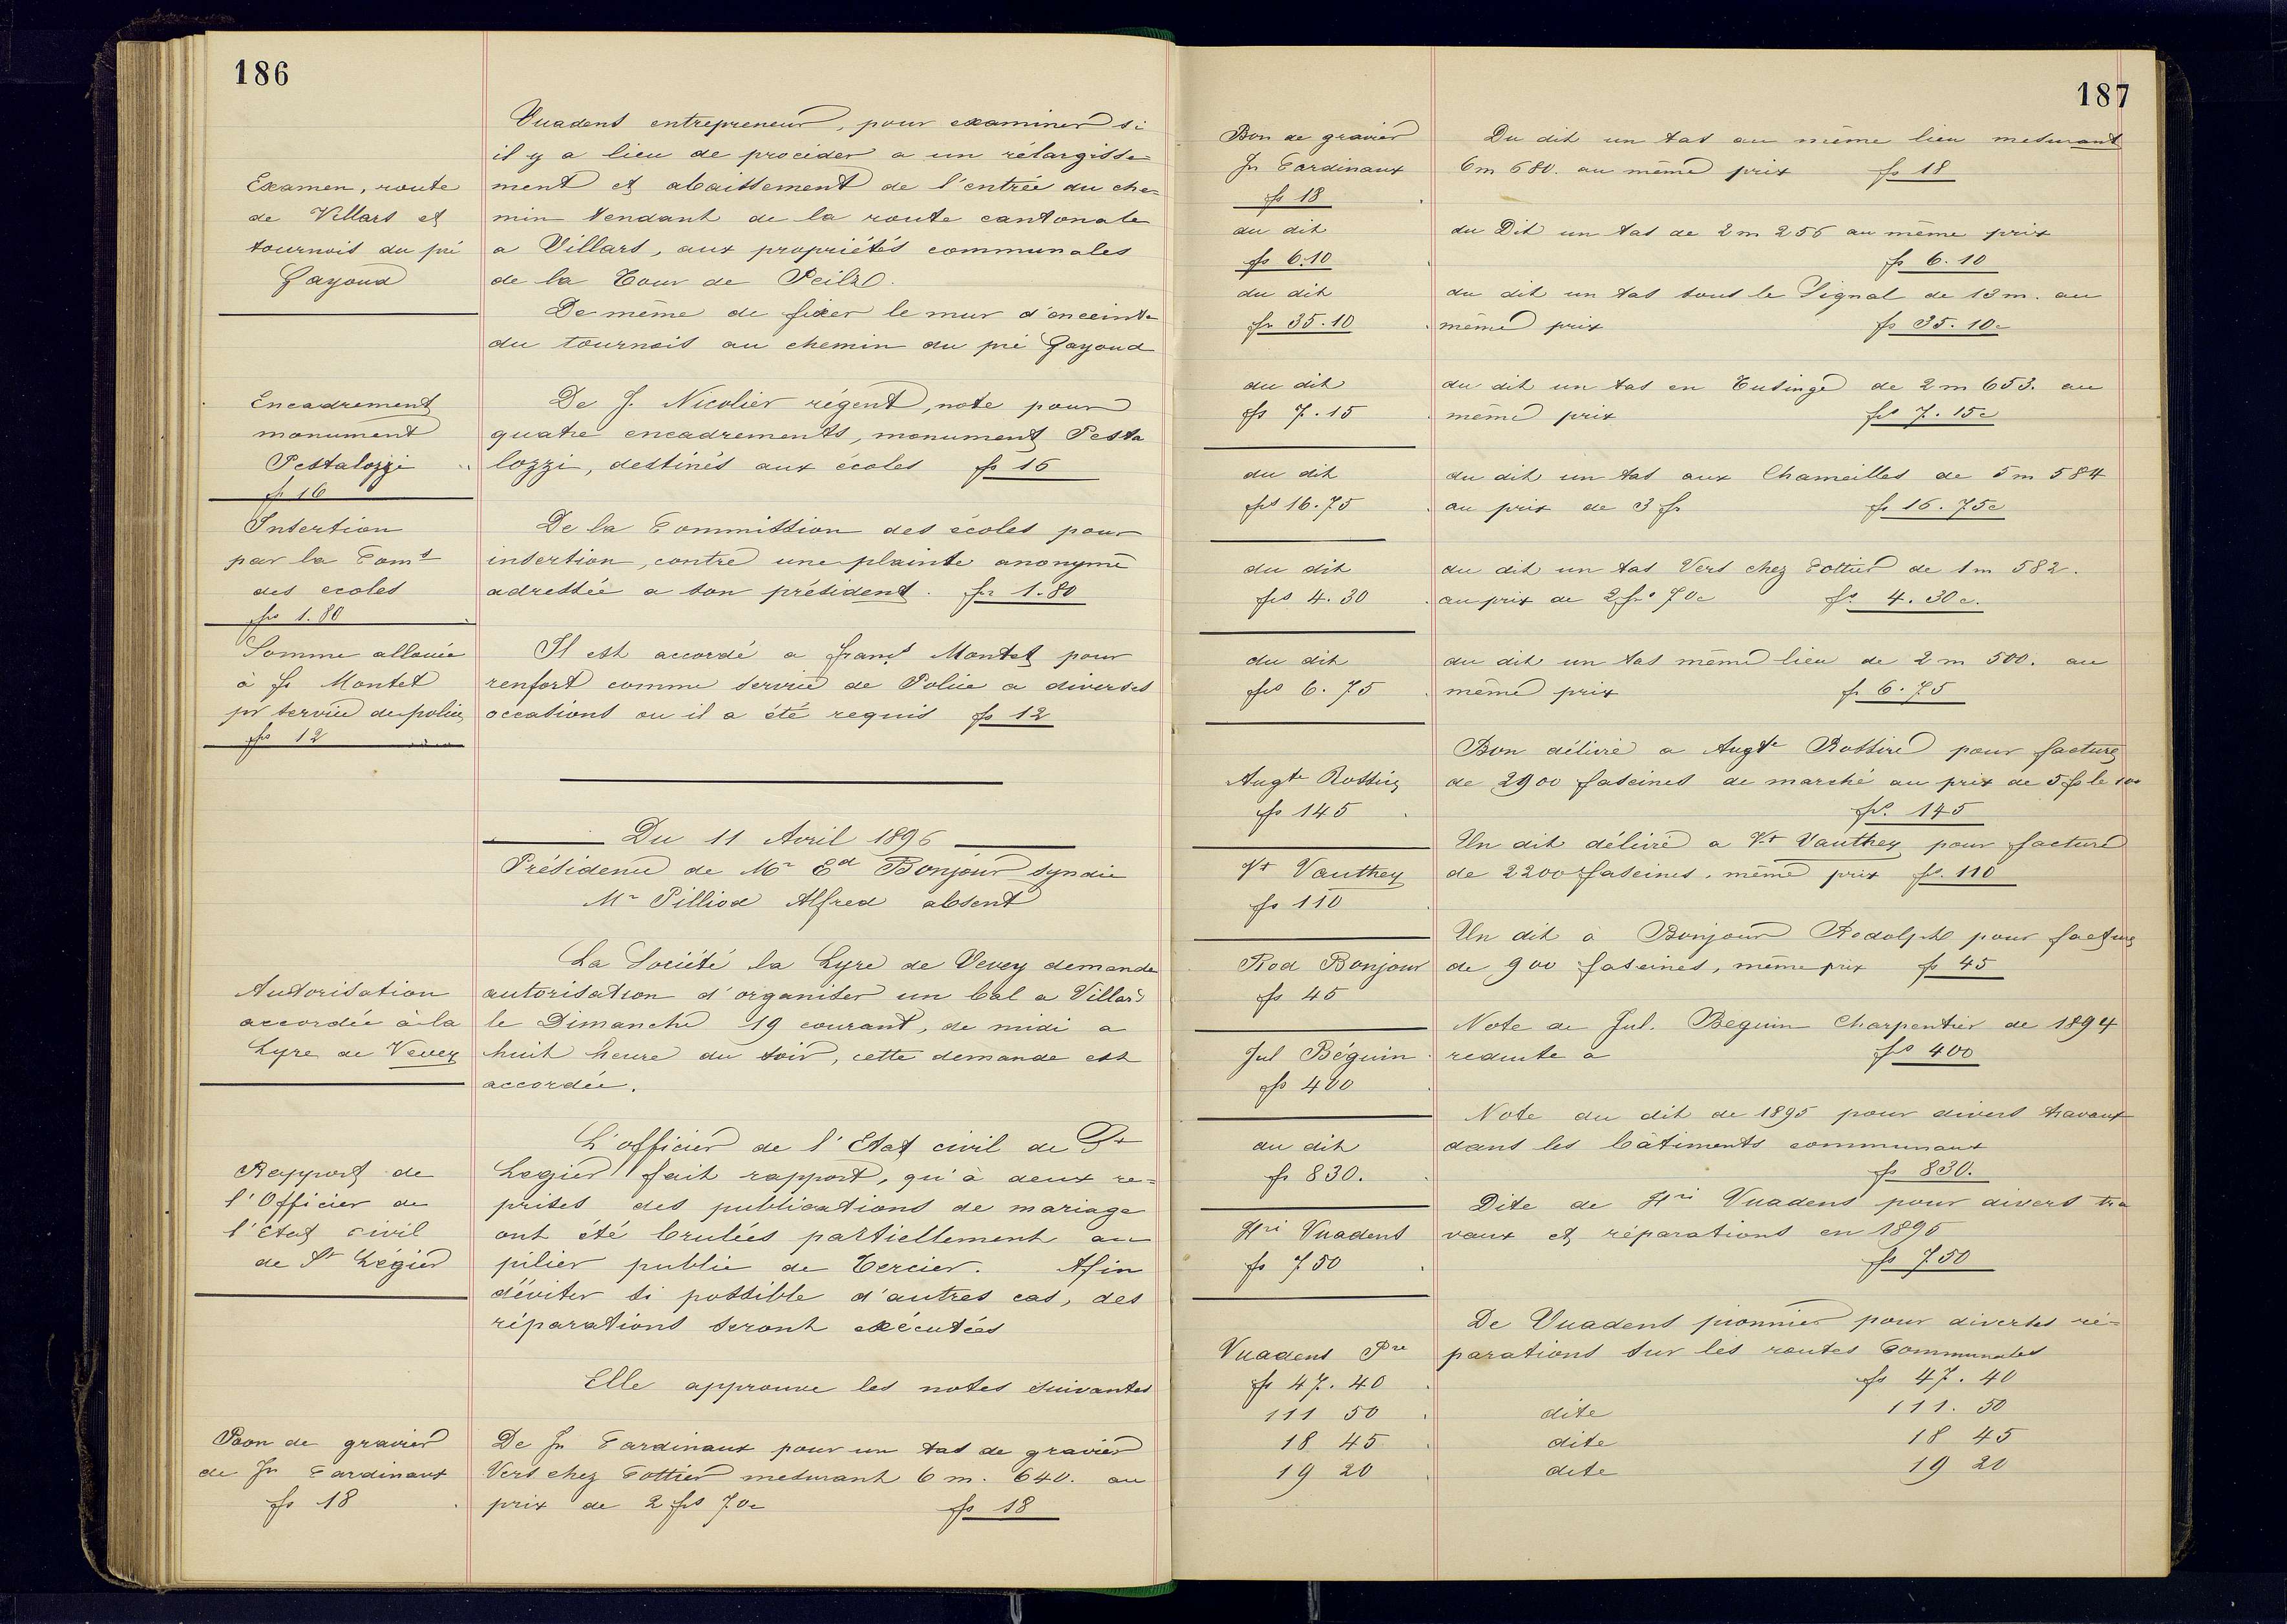 186
Vuadens entrepreneur, pour examiner si
il y a lieu de procéder a un rélargisse=
Examen, route
de Villars et
tournois du pré
Gayoud
ment et abaissement de l'entrée du che=
min tendant de la route cantonale
a Villars, aux propriétés communales
de la Tour de Peilz.
De même de fixer le mur d'enceinte
du tournois au chemin du pré Gayoud
Encadrement
monument
Pestalozzi
fr 16
De J. Nicolier régent, note pour
quatre encadrements, monument Pesta
lozzi, destinés aux écoles fr 16
Insertion
par la Coms
des ecoles
frs 1.80
De la Commission des écoles pour
insertion, contre une plainte anonyme
adressée a son président. fr 1.80
Somme allouée
à Fs Montet
pr service de police
frs 12
Il est accordé a Franç Montet pour
renfort comme service de Police a diverses
occasions ou il a été requis fr 12
Du 11 Avril 1896
Présidence de Mr Ed Bonjour syndic
Mr Pilliod Alfred absent
Autorisation
accordée à la
Lyre de Vevey
La Société la Lyre de Vevey demande
autorisation d'organiser un bal a Villard
le Dimanche 19 courant, de midi a
huit heure du soir, cette demande est
accordée.
Rapport de
l'Officier de
l'état civil
de St Légier
L'officier de l'Etat civil de St
Legier fait rapport, qu'à deux re=
prises des publications de mariage
ont été brulées partiellement au
pilier public de Tercier. Afin
d'éviter si possible d'autres cas, des
réparations seront exécutées
Elle approuve les notes suivantes
Bon de gravier
de Jn Cardinaux
fr 18
De Jn Cardinaux pour un tas de gravier
Vers chez Cottier mesurant 6 m. 640. au
prix de 2 frs 70c fr 18
187
Bon de gravier
Jn Cardinaux
fr 18
Du dit un tas au même lieu mesurant
6m 680. au même prix fr 18
du dit
fr 6.10
du Dit un tas de 2m 256 au même prix
fr 6.10
du dit
fr 35.10
du dit un tas sous le Signal de 13m. au
même prix fr 35.10c
du dit
fr 7.15
du dit un tas en Tusinge de 2m 653. au
même prix frs 7.15c
du dit
frs 16.75
du dit un tas aux Chameilles de 5m 584
au prix de 3 fr fr 16.75c
du dit
frs 4.30
du dit un tas Vers chez Cottier de 1m 582.
au prix de 2 frs 70c fr 4.30c.
du dit
frs 6.75
du dit un tas même lieu de 2 m 500. au
même prix fr 6.75
Augte Rossire
fr 145
Bon délivré a Augte Rossire pour facture
de 2900 fascines de marché au prix de 5 fr le 100
frs. 145
Vt Vauthey
fr 110
Un dit délivré a Vt Vauthey pour facture
de 2200 fascines, même prix fr. 110
Rod Bonjour
fr 45
Un dit à Bonjour Rodolphe pour facture
de 900 fascines, même prix fr 45
Jul Béguin
fr 400
Note de Jul. Beguin Charpentier de 1894
reduite a frs 400
du dit
fr 830.
Note du dit de 1895 pour divers travaux
dans les bâtiments communaux
fr 830.
Hri Vuadens
fr 750
Dite de Hri Vuadens pour divers tra
vaux et réparations en 1895
fr 750
Vuadens Pre
fr 47.40
111 50
18 45
19 20
De Vuadens pionnier pour diverses ré=
parations sur les routes Communales
fr 47.40
dite 111.50
dite 18 45
dite 19 20